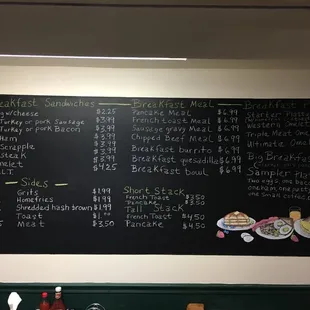 eakfast Sandwiches
g w/Cheese $2.25
Turkey or pork Sausage $3.99
Turkey or pork Bacon $3.99
Ham $3.99
Scrapple $3.99
steak $6.99
melet $3.99
L.T. $4.25
Sides
Grits $1.99
Homefries $1.99
Shredded hash brown $1.99
Toast
Meat $3.50
Breakfast Meal
Pancake Meal $6.99
French toast Meal $6.99
Sausage gravy Meal $6.99
Chipped Beef Meal $6.99
Breakfast burrito $6.99
Breakfast quesadilla $6.99
Breakfast bowl $6.99
Short Stack
French Toast $3.50
Pancake $3.50
Tall Stack
French Toast $4.50
Pancake $4.50
Breakfast
Starter
Western
Triple Meat Om
Ultimate Om
Big Breakfast
Sampler
Two eggs, one bac
one ham, one
one small